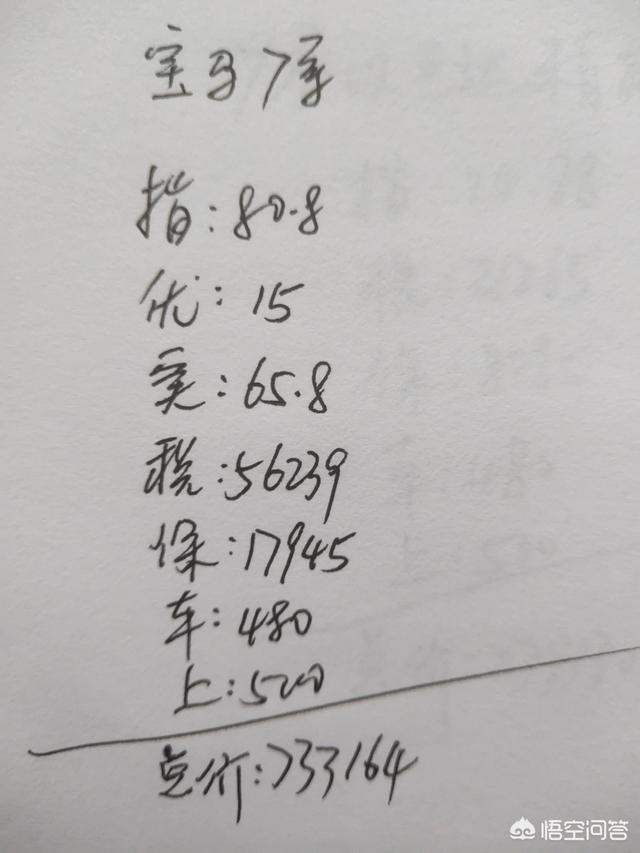 宝马7系
指:80.8
优:15
实:65.8
税:56239
保:17945
车:480
上:500
总价:733164
悟空问答